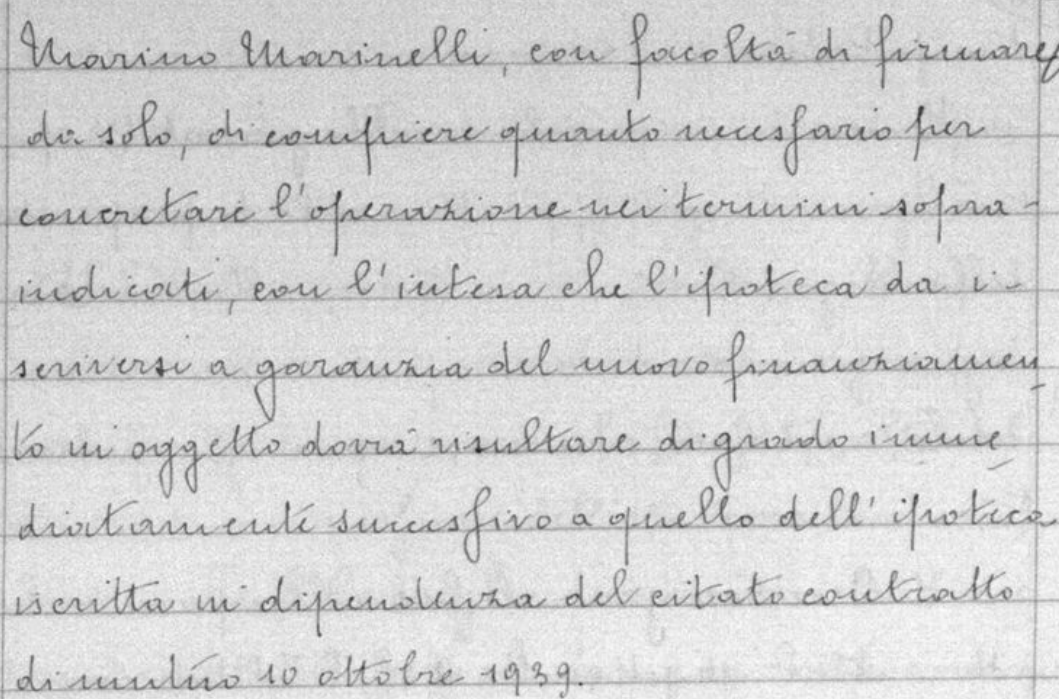 Marino Marinelli, con facoltà di firmare
da solo, di compiere quanto necessario per
concretare l'operazione nei termini sopra-
indicati, con l'intesa che l'ipoteca da i-
scriversi a garanzia del nuovo finanziamen
to in oggetto dovrà risultare di grado imme
diatamente successivo a quello dell'ipoteca
iscritta in dipendenza del citato contratto
di mutuo 10 ottobre 1939.